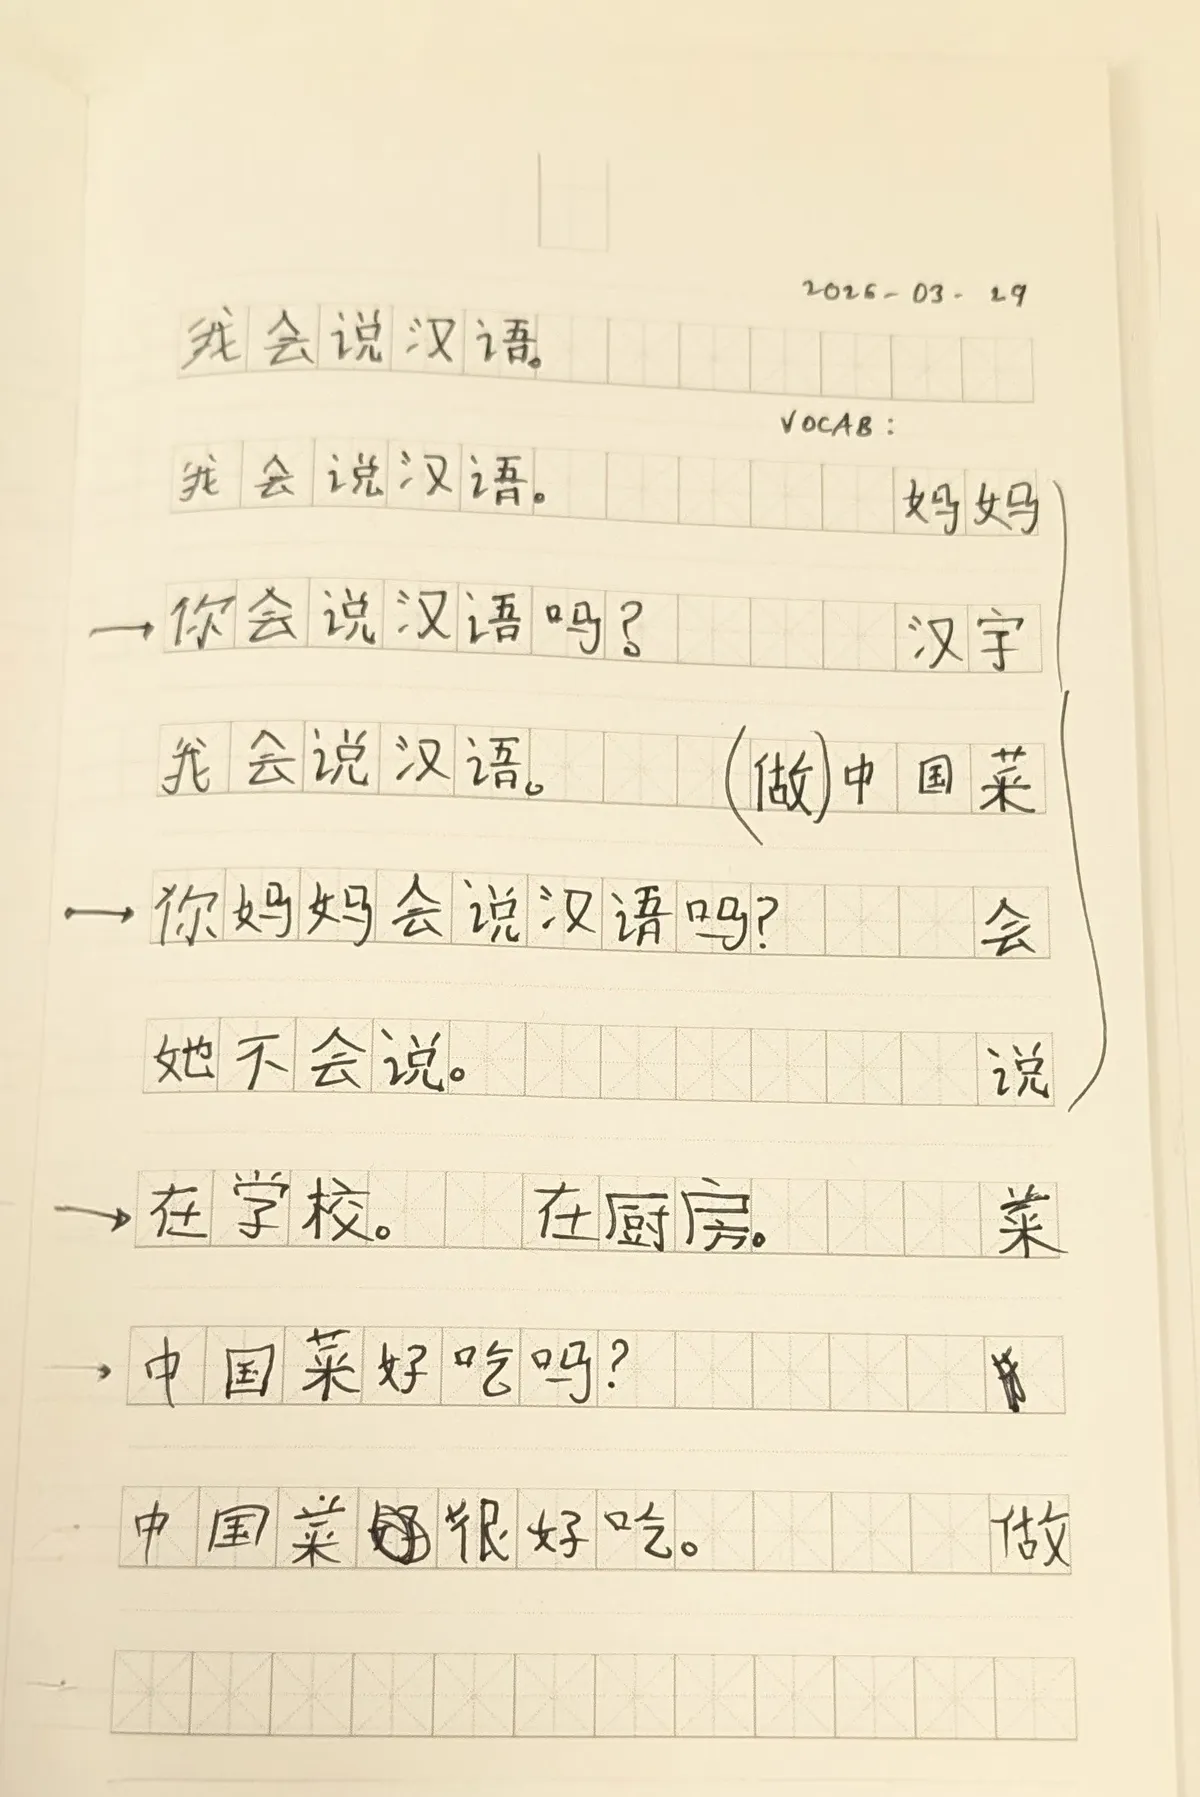 2026-03-29
我会说汉语。
VOCAB:
我会说汉语。 妈妈
你会说汉语吗? 汉字
我会说汉语。 (做)中国菜
你妈妈会说汉语吗? 会
她不会说。 说
在学校。 在厨房。 菜
中国菜好吃吗?
中国菜很好吃。 做